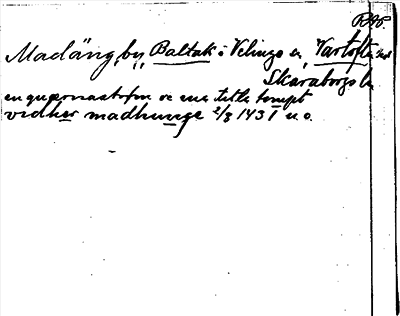 RAP.
Madäng, by, Baltak i Velinge sn, Vartofta hd
Skaraborgs l.
en quernastrøm oc ena litle tompt
vidher madhunge 2/8 1431 u.o.